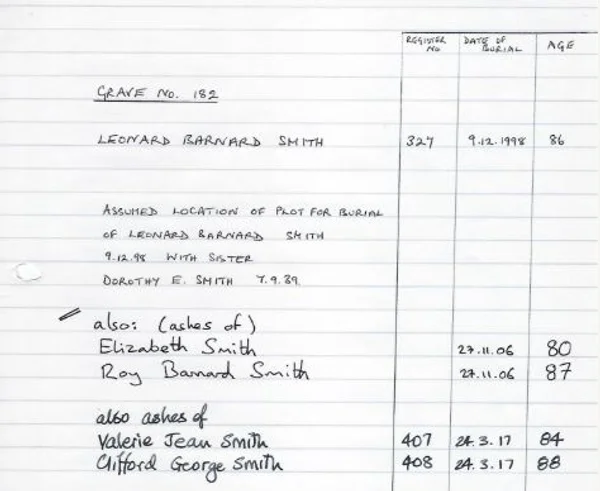 REGISTER NO DATE OF BURIAL AGE
GRAVE NO. 182
LEONARD BARNARD SMITH 327 9.12.1998 86
ASSUMED LOCATION OF PLOT FOR BURIAL
OF LEONARD BARNARD SMITH
9.12.98 WITH SISTER
DOROTHY E. SMITH 7.9.39.
also: (ashes of)
Elizabeth Smith 27.11.06 80
Roy Barnard Smith 27.11.06 87
also ashes of
Valerie Jean Smith 407 24.3.17 84
Clifford George Smith 408 24.3.17 88